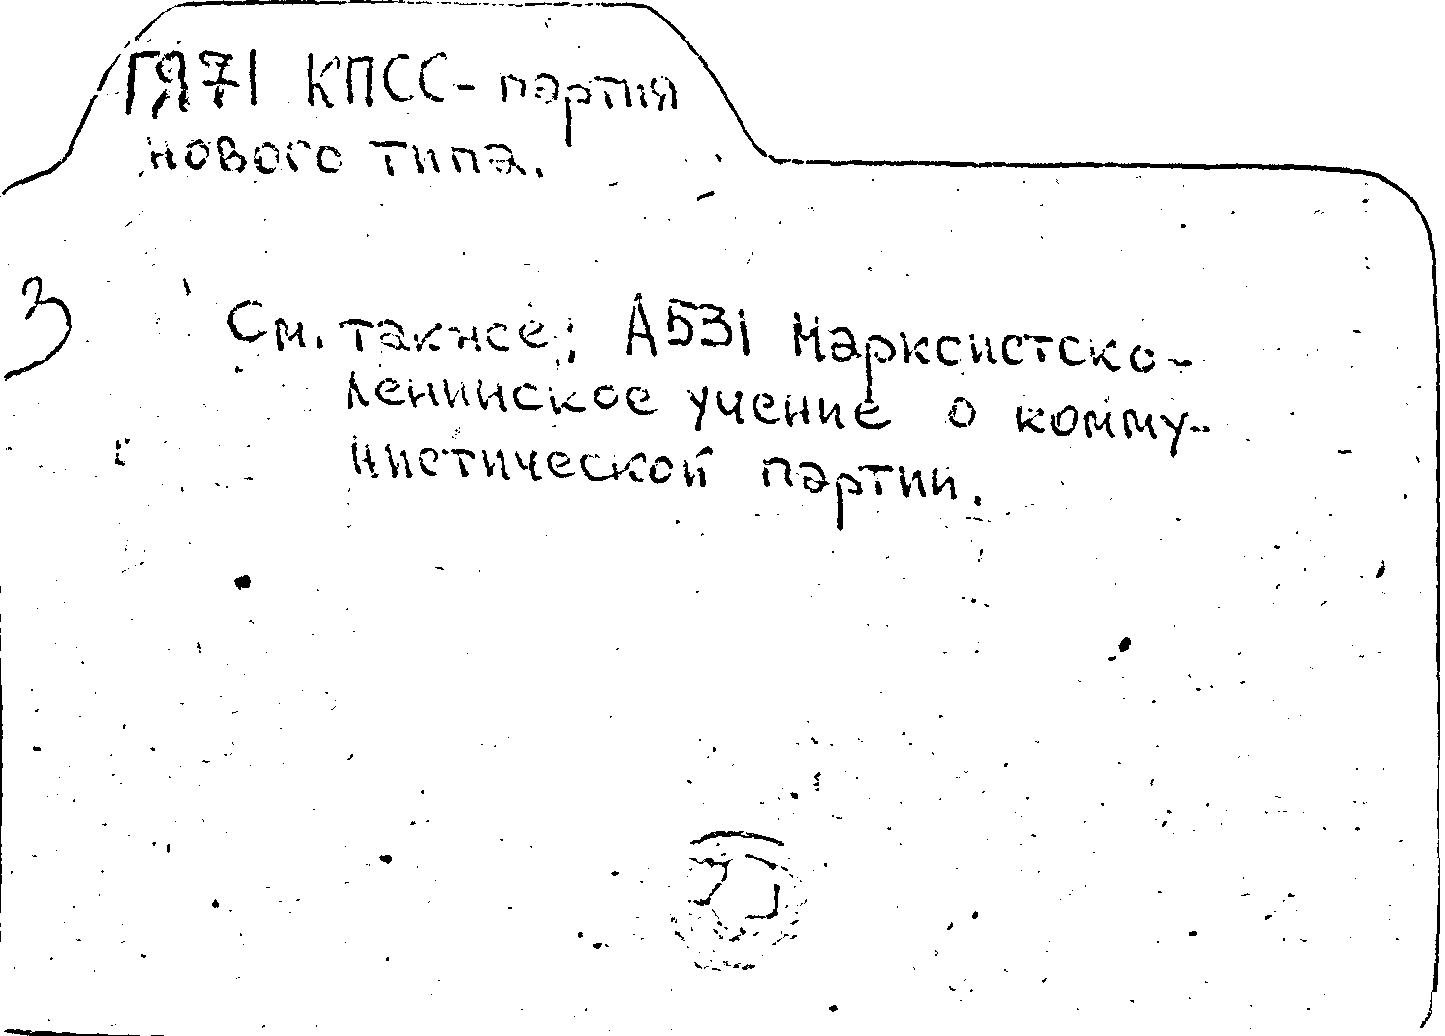 ГЯ71 КПСС - партия
нового типа.
3
См. также: А531 Марксистско-
ленинское учение о комму-
нистической партии.